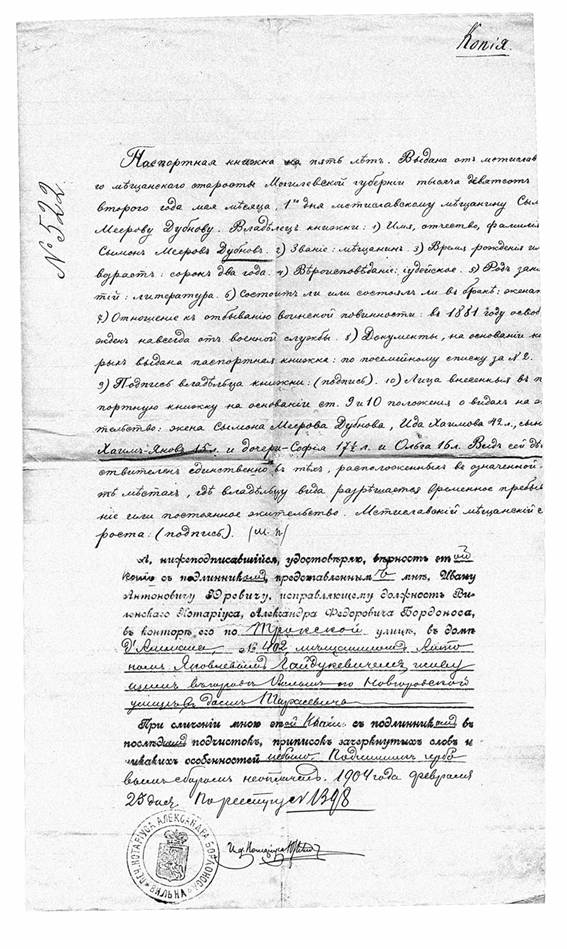 Копія.
№ 522
Паспортная книжка на пять лѣтъ. Выдана отъ мстислав
го мѣщанскаго старосты Могилевской губерніи тысяча девятсотъ
второго года мая мѣсяца, 1го дня мстиславскому мѣщанину Сым
Меерову Дубнову. Владѣлецъ книжки: 1) Имя, отчество, фамилія
Сымонъ Мееровъ Дубновъ. 2) Званіе: мѣщанинъ. 3) Время рожденія и
возрастъ: сорокъ два года. 4) Вѣроисповѣданіе: іудейское. 5) Родъ заня
тій: литература. 6) Состоитъ ли или состоялъ ли въ бракѣ: женатъ
7) Отношеніе къ отбыванію воинской повинности: въ 1881 году освоб
жденъ навсегда отъ военной службы. 8) Документы, на основаніи ко
рыхъ выдана паспортная книжка: по посемейному списку за № 2.
9) Подпись владѣльца книжки: (подпись). 10) Лица внесенныя въ п
портную книжку на основаніи ст. 9 и 10 положенія о видахъ на ж
тельство: жена Сымона Меерова Дубнова, Ида Хаимова 42 л., сынъ
Хаимъ-Яновъ 15 л. и дочери Софія 17½ л. и Ольга 16 л. Видъ сей дѣ
ствителенъ единственно въ тѣхъ, расположенныхъ въ означенной
тѣ мѣстахъ, гдѣ владѣльцу вида разрѣшается временное пребы
ніе или постоянное жительство. Мстиславскій мѣщанскій с
роста: (подпись). (М. П.)
Я, нижеподписавшійся, удостовѣряю, вѣрность этой
копіи съ подлинникомъ, представленнымъ мнѣ, Ивану
Антоновичу Юревичу, исправляющему должность Ви
ленскаго Нотаріуса, Александра Федоровича Бордоноса,
въ конторѣ его по Трокской улицѣ, въ домѣ
№ 402, мѣщаниномъ Анто
номъ Яковлевымъ Гайдукевичемъ, живу
щимъ въ городѣ Вильнѣ по Новгородской
улицѣ въ домѣ
При сличеніи мною этой копіи съ подлинникомъ въ
послѣднемъ подчистокъ, приписокъ зачеркнутыхъ словъ и
никакихъ особенностей не было. Подлинникъ гербо
вымъ сборомъ неоплаченъ. 1904 года февраля
25 дня. По реестру № 1398
И. д. Нотаріуса
ПЕЧ. НОТАРІУСА АЛЕКСАНДРА БОРДОНОСА
ВИЛЬНА